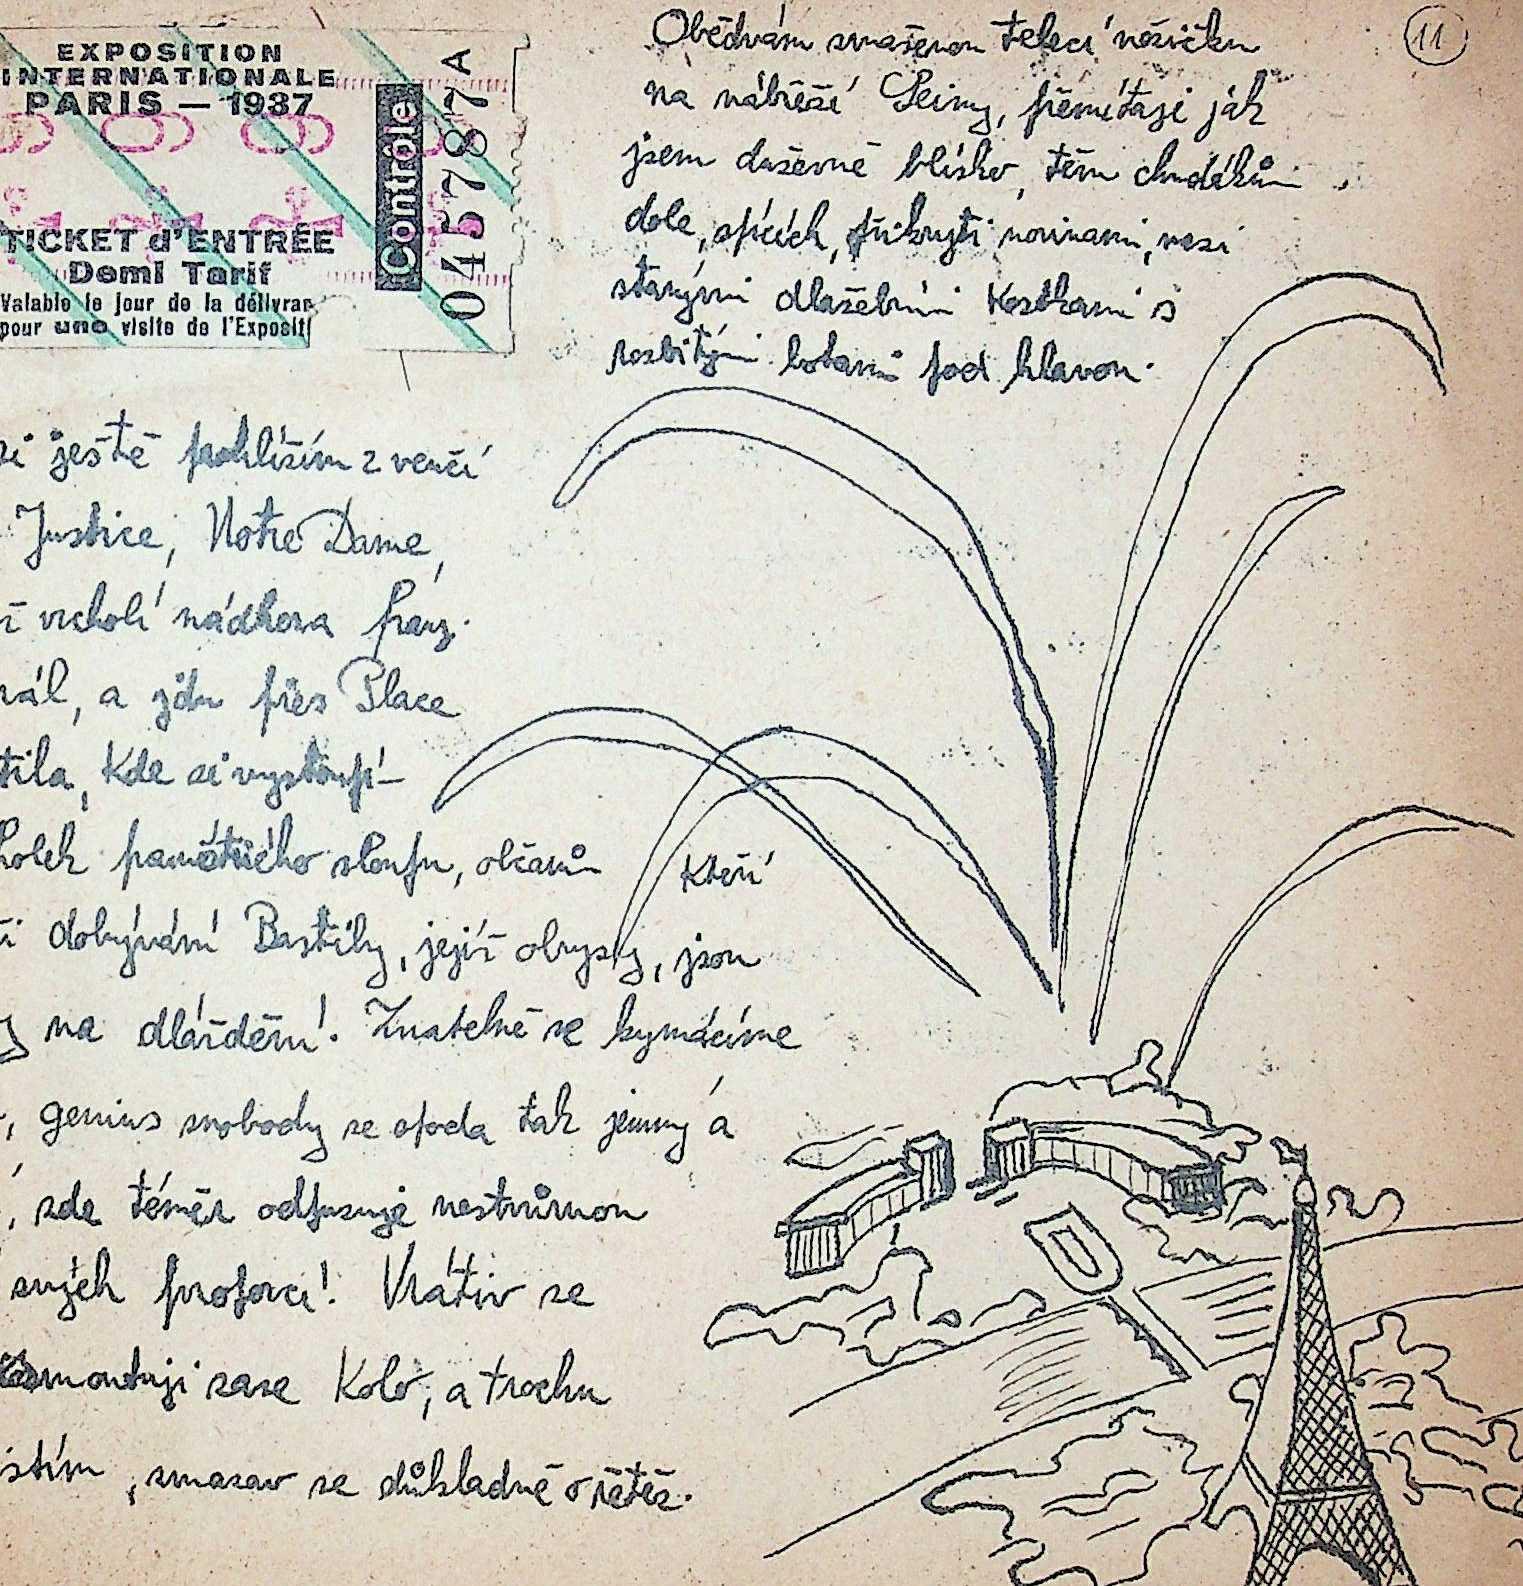 EXPOSITION
INTERNATIONALE
PARIS — 1937
TICKET d'ENTRÉE
Demi Tarif
Valable le jour de la délivran
pour une visite de l'Expositi
Contrôle
045787 A
11
Obědvám smaženou telecí nožičku
na nábřeží Seiny, přemítaje jak
jsem duševně blízko těm chudákům
dole, spících, přikryti novinami, mezi
starými dlažebními kostkami s
rozbitými botami pod hlavou.
si ještě prohlížím z venčí
Justice, Notre Dame,
ž vrcholí nádhera franz.
nál, a jdu přes Place
tila, kde si vystoupí-
holek památného sloupu, občanům kteří
ři dobývání Bastily, jejíž obrysy, jsou
y na dláždění. Znatelně se kymácíme
, genius svobody se zpoda tak jemný a
, zde téměř odpuzuje nestvůrnou
svých proporcí. Vrátiv se
smontuji zase kolo, a trochu
istím, smazav se důkladně o řetěz.